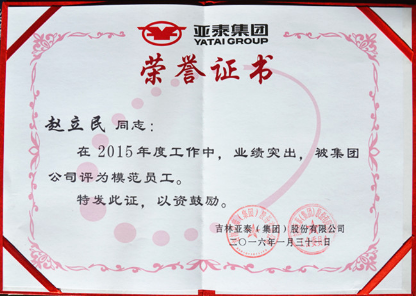 亚泰集团
YATAI GROUP
荣誉证书
赵立民 同志：
在 2015 年度工作中，业绩突出，被集团
公司评为模范员工。
特发此证，以资鼓励。
吉林亚泰（集团）股份有限公司
二〇一六年一月三十一日